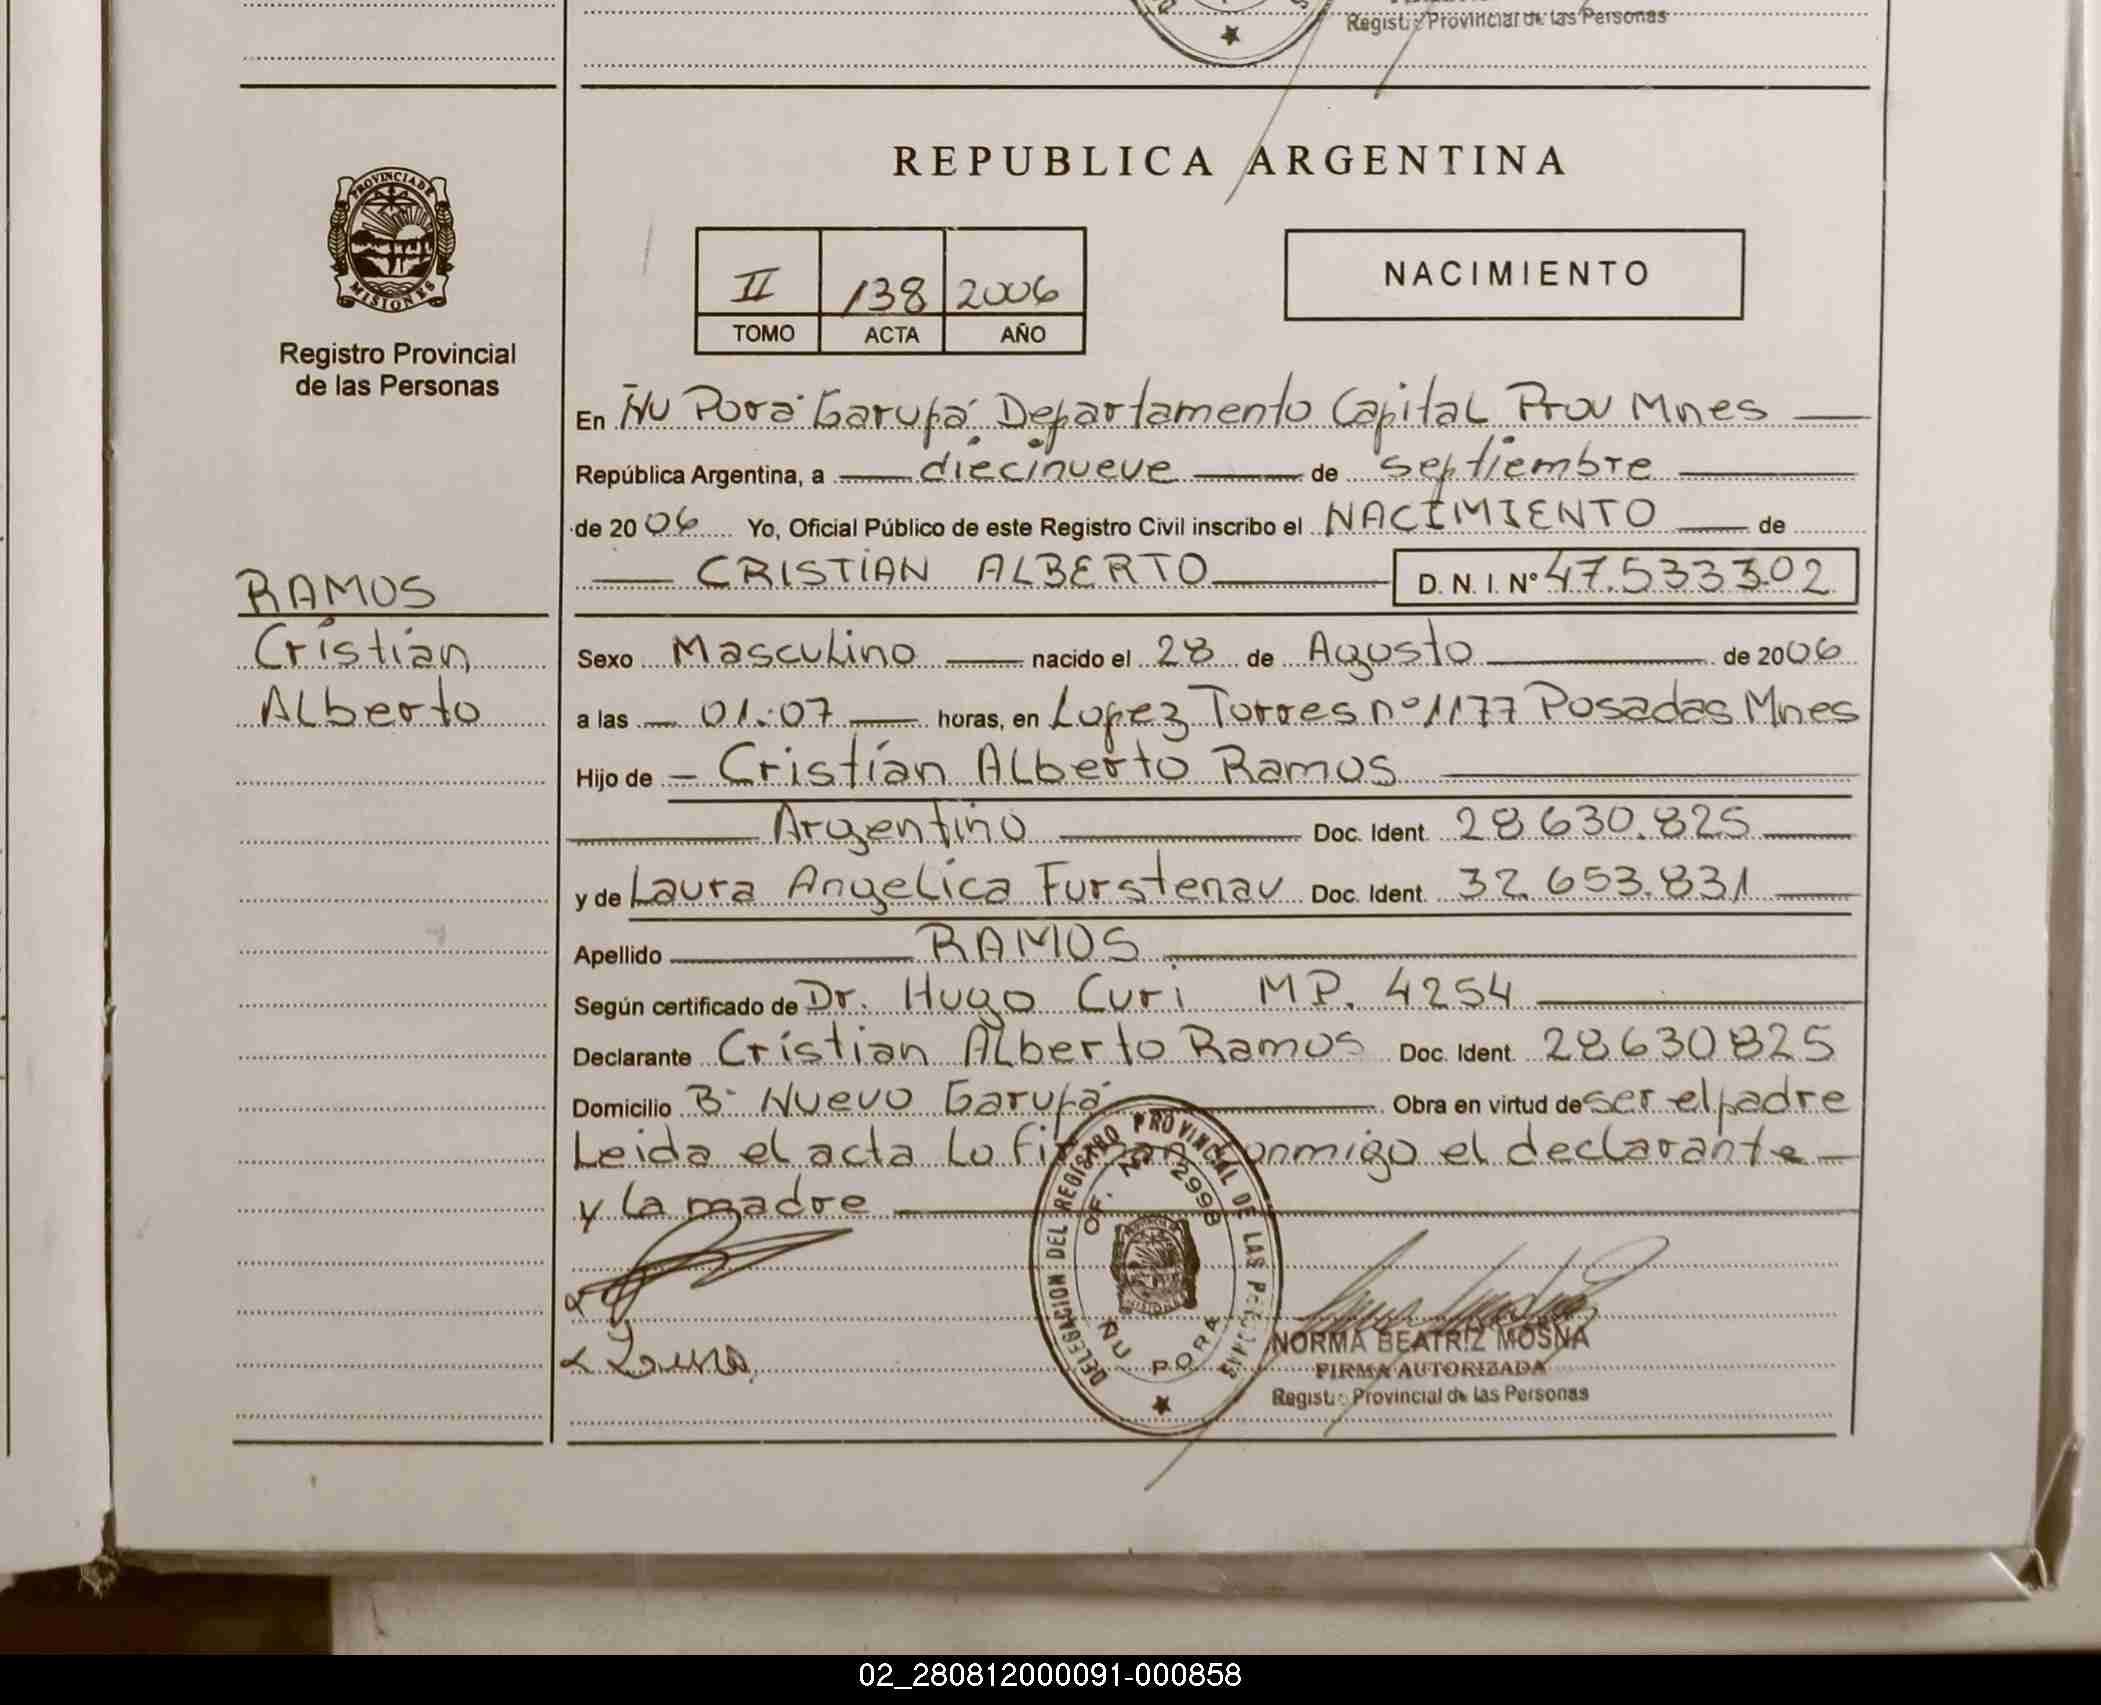 Regist. Provincial de las Personas
REPUBLICA ARGENTINA
PROVINCIA DE
MISIONES
Registro Provincial
de las Personas
II 138 2006
TOMO ACTA AÑO
NACIMIENTO
En Ñu Porá Garupá Departamento Capital Prov Mnes
República Argentina, a diecinueve de septiembre
de 2006 Yo, Oficial Público de este Registro Civil inscribo el NACIMIENTO de
CRISTIAN ALBERTO D. N. I. Nº 47.533302
RAMOS
Cristian
Alberto
Sexo Masculino nacido el 28 de Agosto de 2006
a las 01:07 horas, en Lopez Torres nº 1177 Posadas Mnes
Hijo de Cristian Alberto Ramos
Argentino Doc. Ident. 28.630.825
y de Laura Angelica Furstenau Doc. Ident. 32.653.831
Apellido RAMOS
Según certificado de Dr. Hugo Curi MP. 4254
Declarante Cristian Alberto Ramos Doc. Ident. 28630825
Domicilio Bº Nuevo Garupá Obra en virtud de ser el padre
Leida el acta Lo firman conmigo el declarante
y La madre
DELEGACION DEL REGISTRO PROVINCIAL DE LAS PERSONAS
OF. Nº 2998
MISIONES
ÑU PORA
Laura
NORMA BEATRIZ MOSNA
FIRMA AUTORIZADA
Regist. Provincial de las Personas
02_280812000091-000858